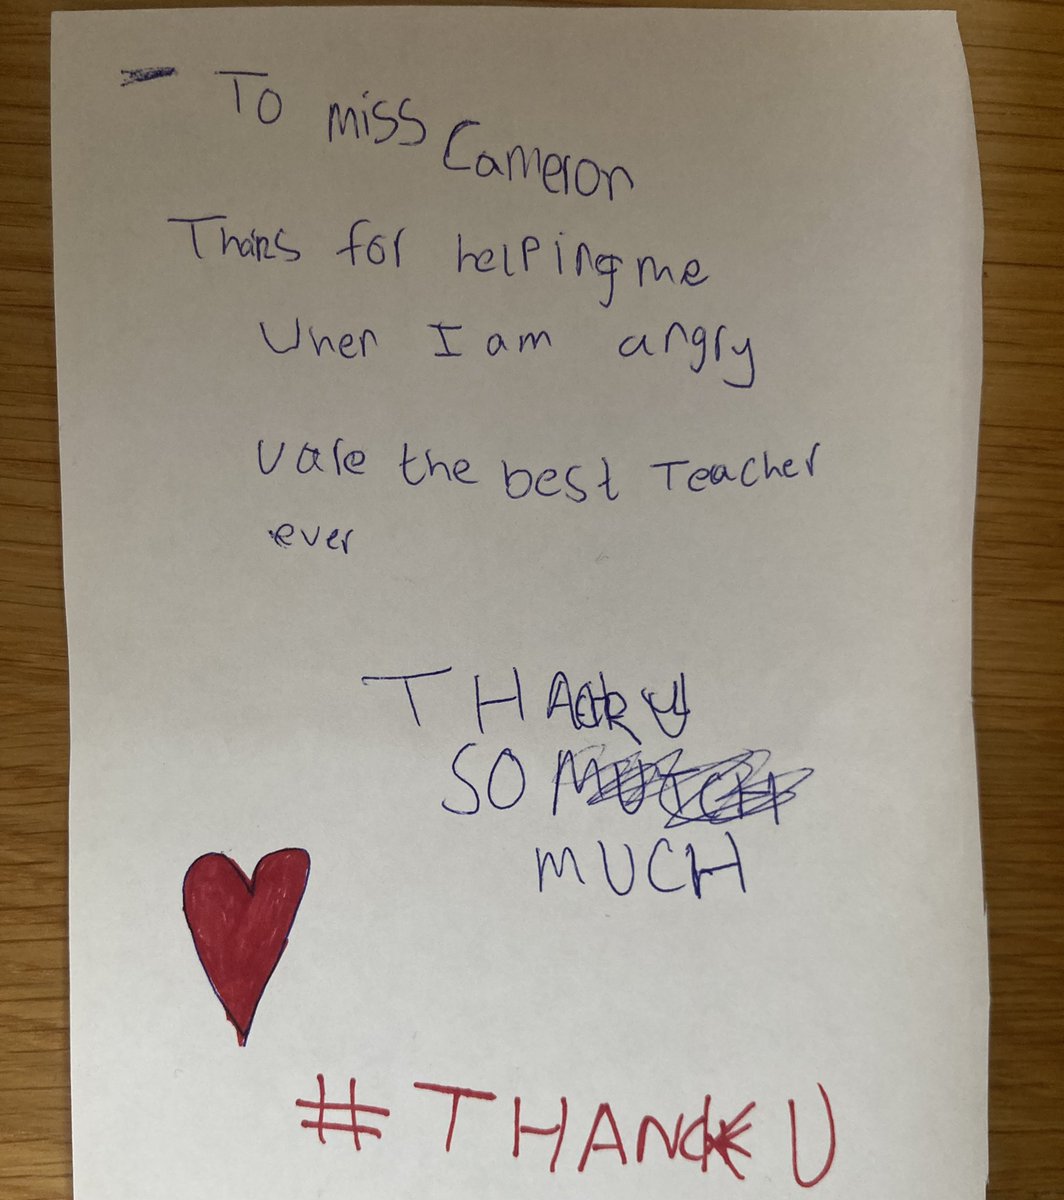 To miss Cameron
Thanks for helping me
When I am angry
U are the best Teacher
ever
THACK U
SO
MUCH
#THANCK U